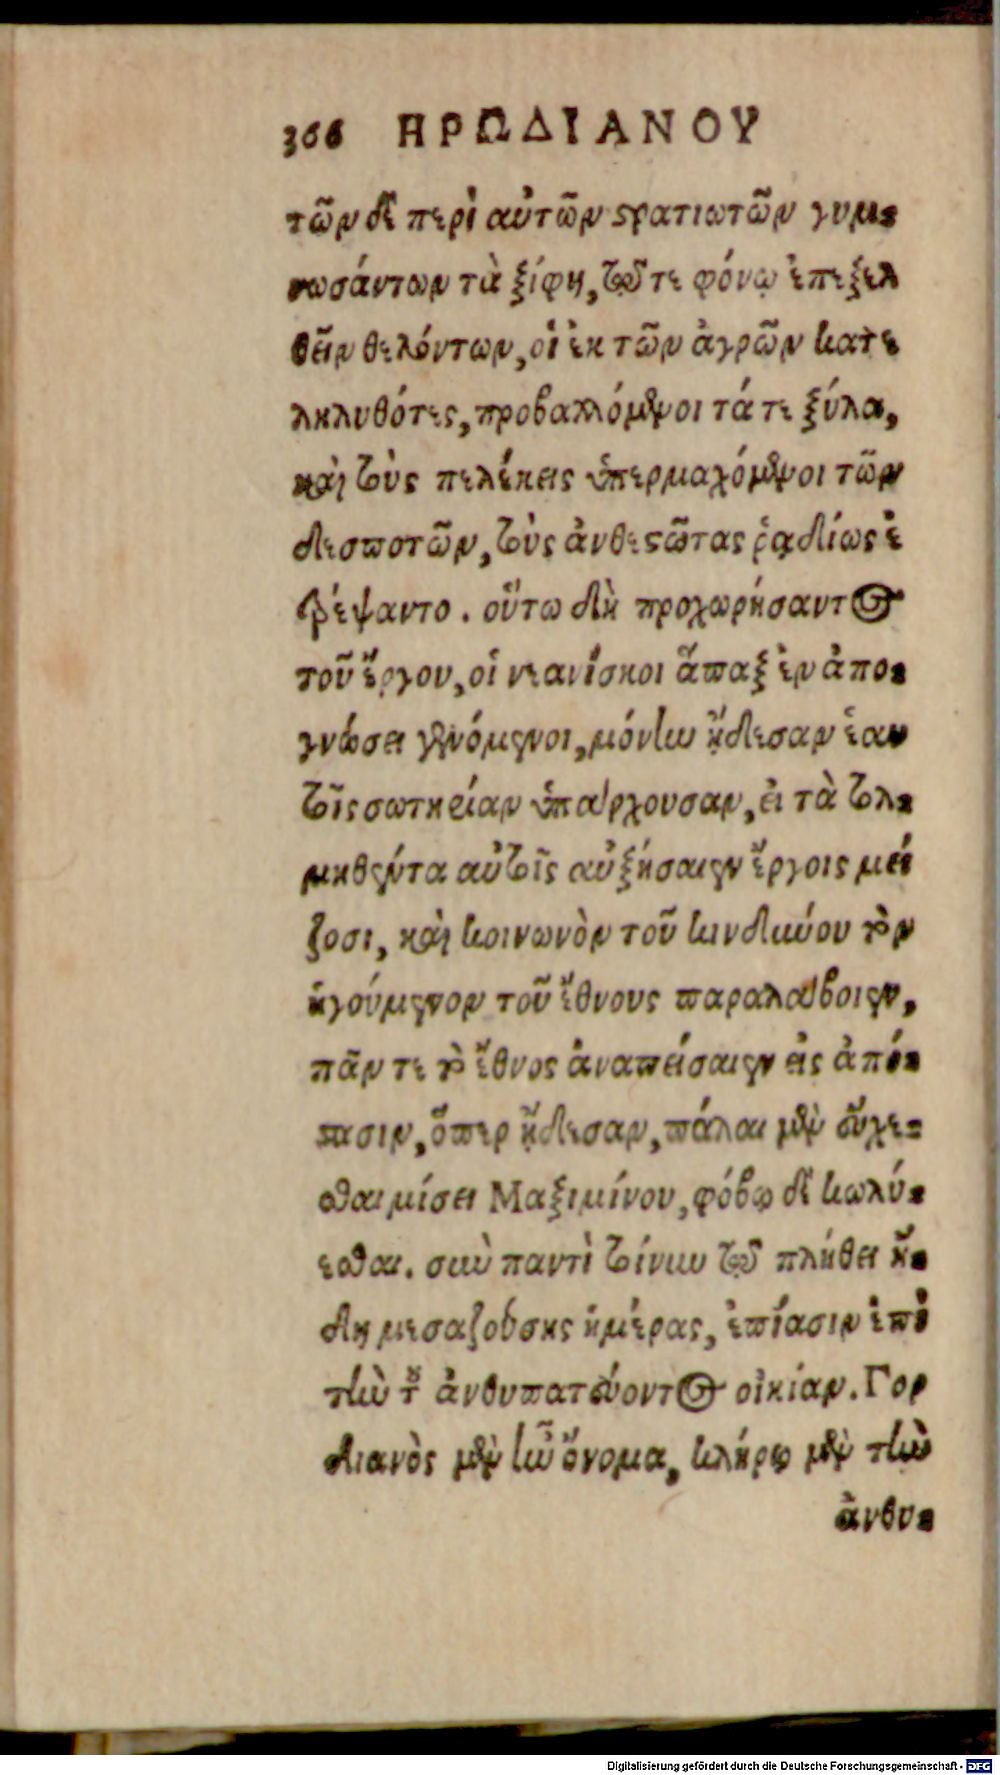 366 ΗΡΩΔΙΑΝΟΥ
τῶν δὲ περὶ αὐτῶν στρατιωτῶν γυμ-
νωσάντων τὰ ξίφη, τῷ τε φόνῳ ἐπεξελ
θεῖν θελόντων, οἱ ἐκ τῶν ἀγρῶν κατε
ληλυθότες, προβαλλόμενοι τά τε ξύλα,
καὶ τοὺς πελέκεις ὑπερμαχόμενοι τῶν
δεσποτῶν, τοὺς ἀνθεστῶτας ῥᾳδίως ἐ
τρέψαντο. οὕτω δὴ προχωρήσαντος
τοῦ ἔργου, οἱ νεανίσκοι ἅπαξ ἐν ἀπο-
γνώσει γενόμενοι, μόνην ᾔδεσαν ἑαυ
τοῖς σωτηρίαν ὑπάρχουσαν, εἰ τὰ τολ-
μηθέντα αὐτοῖς αὐξήσαιεν ἔργοις μεί
ζοσι, καὶ κοινωνὸν τοῦ κινδύνου τὸν
ἡγούμενον τοῦ ἔθνους παραλάβοιεν,
πᾶν τε τὸ ἔθνος ἀναπείσαιεν εἰς ἀπό-
στασιν, ὅπερ ᾔδεσαν, πάλαι μὲν εὔχε-
σθαι μίσει Μαξιμίνου, φόβῳ δὲ κωλύ-
εσθαι. σὺν παντὶ τοίνυν τῷ πλήθει ἤ-
δη μεσαζούσης ἡμέρας, ἐπίασιν ἐπὶ
τὴν τοῦ ἀνθυπατεύοντος οἰκίαν. Γορ
διανὸς μὲν ἦν ὄνομα, κλήρῳ μὲν τὴν
ἀνθυ-
Digitalisierung gefördert durch die Deutsche Forschungsgemeinschaft - DFG